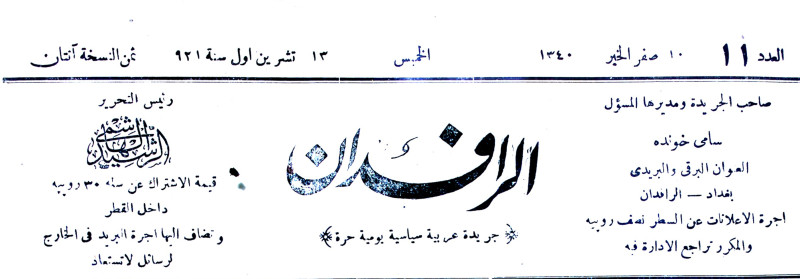 العدد ١١ ١٠ صفر الخير ١٣٤٠ الخميس ١٣ تشرين اول سنة ٩٢١ ثمن النسخة آنتان
صاحب الجريدة ومديرها المسؤل
سامى خونده
العنوان البرقى والبريدى
بغداد — الرافدان
اجرة الاعلانات عن السطر نصف روبيه
والمكرر تراجع الادارة فيه
الرافدان
جريدة عربية سياسية يومية حرة
رئيس التحرير
قيمة الاشتراك عن سنه ٣٠ روبيه
داخل القطر
وتضاف اليها اجرة البريد فى الخارج
لرسائل لاتستعاد